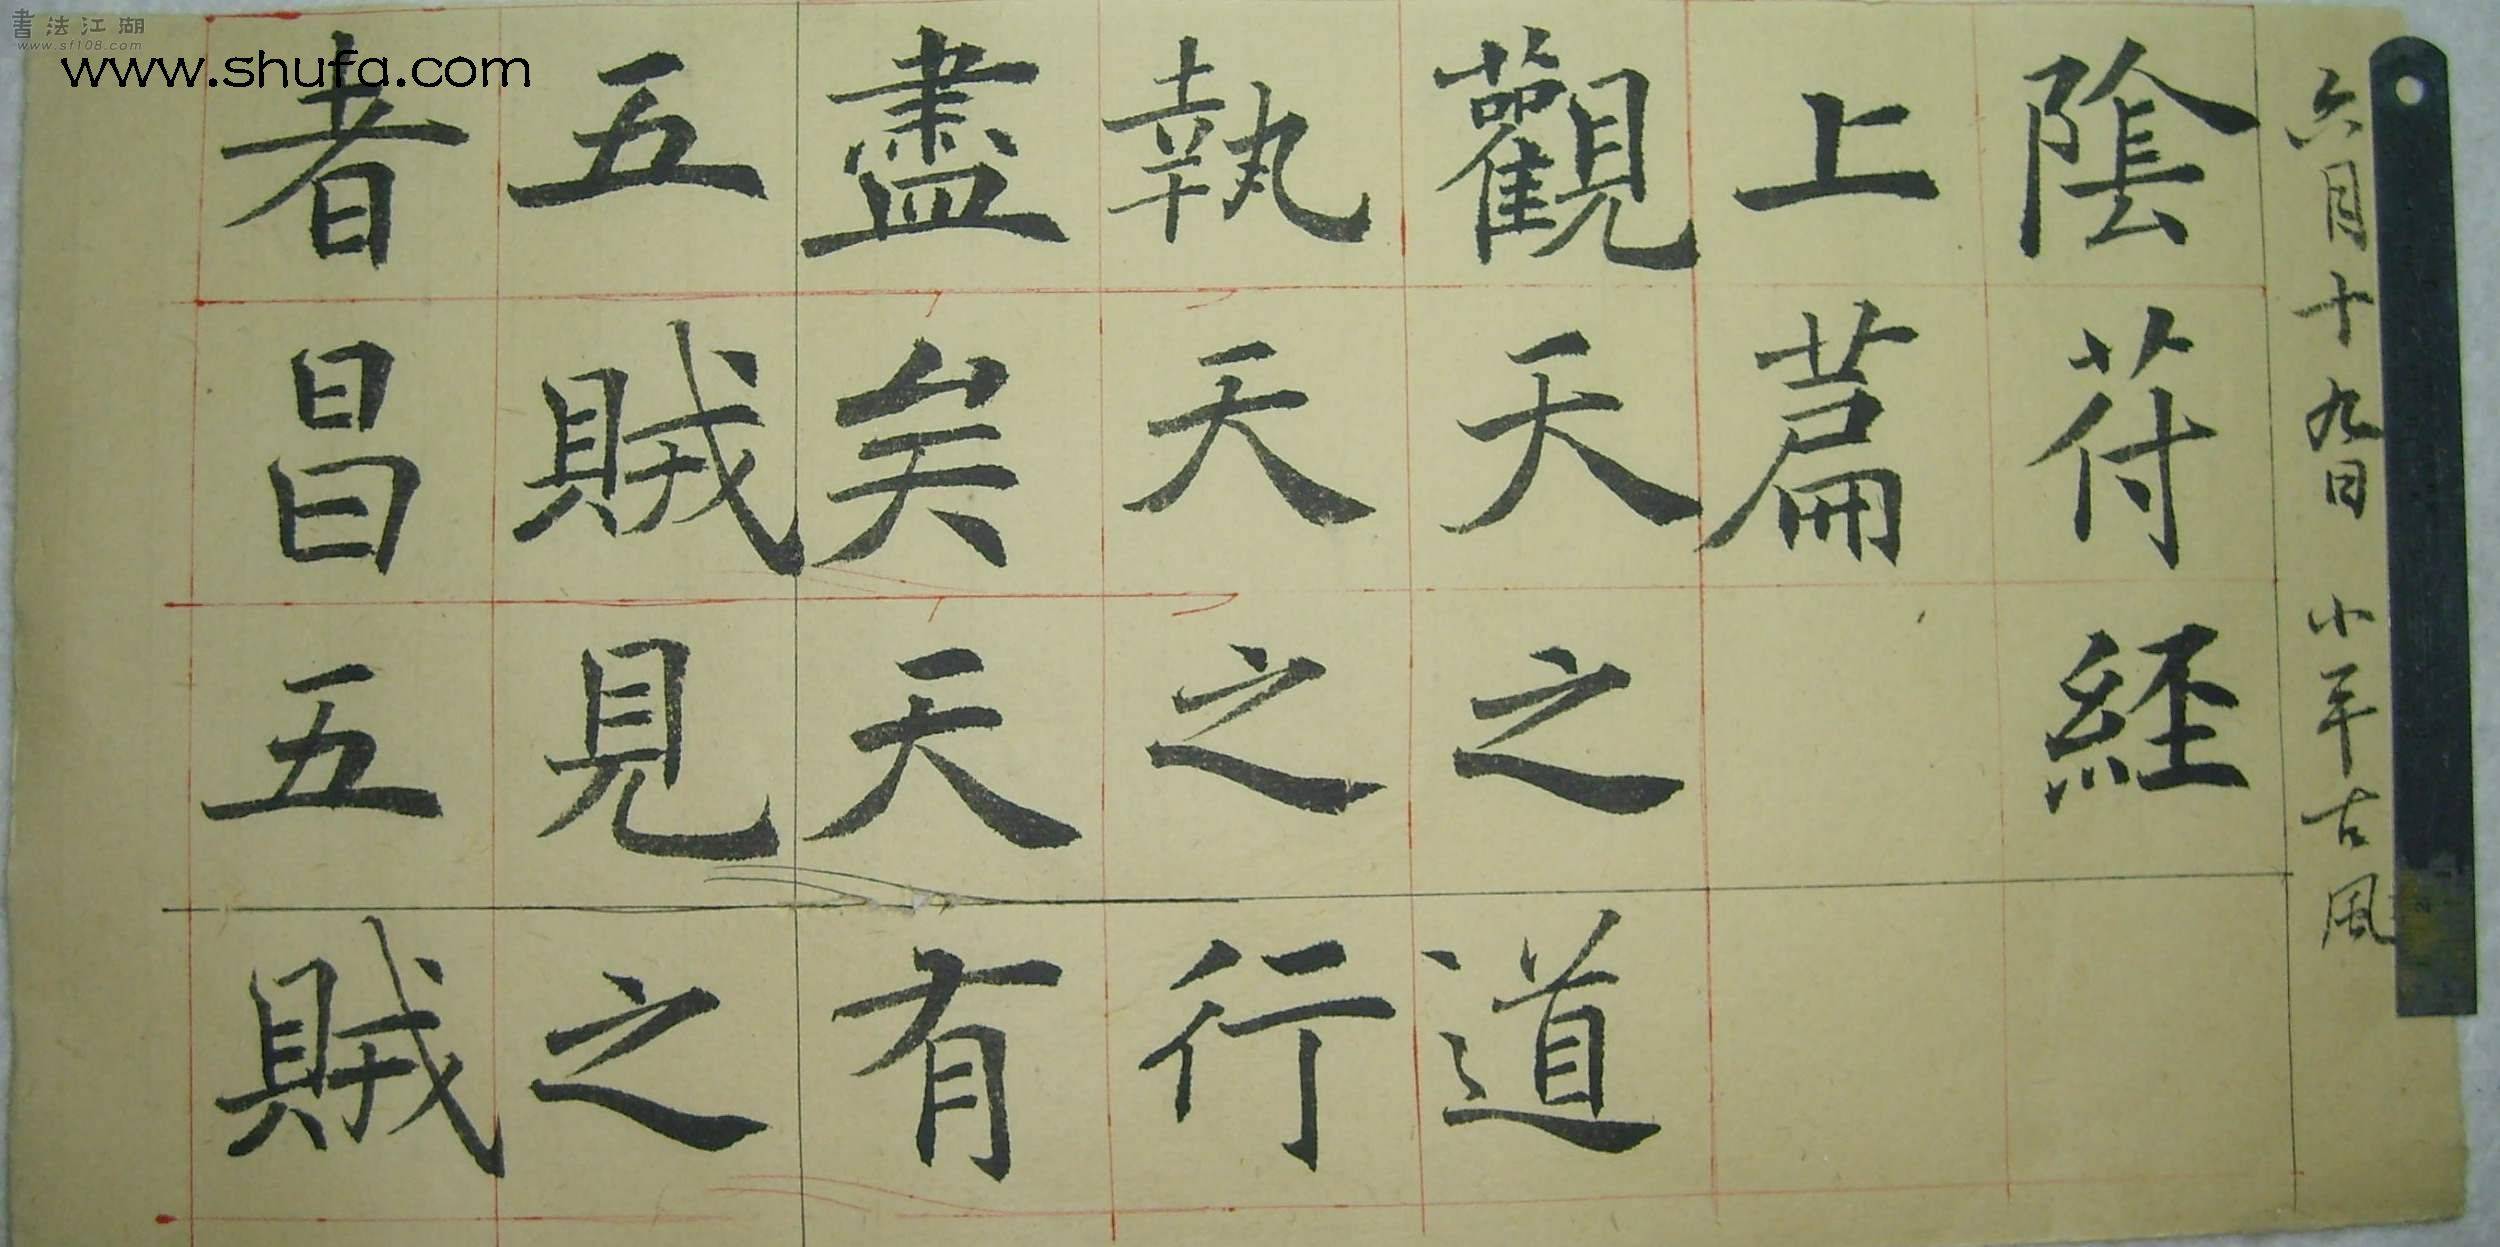 六月十九日 小平古風
陰苻経
上萹
觀天之道
執天之行
盡矣天有
五賊見之
者昌五賊
書法江湖
www.sf108.com
www.shufa.com